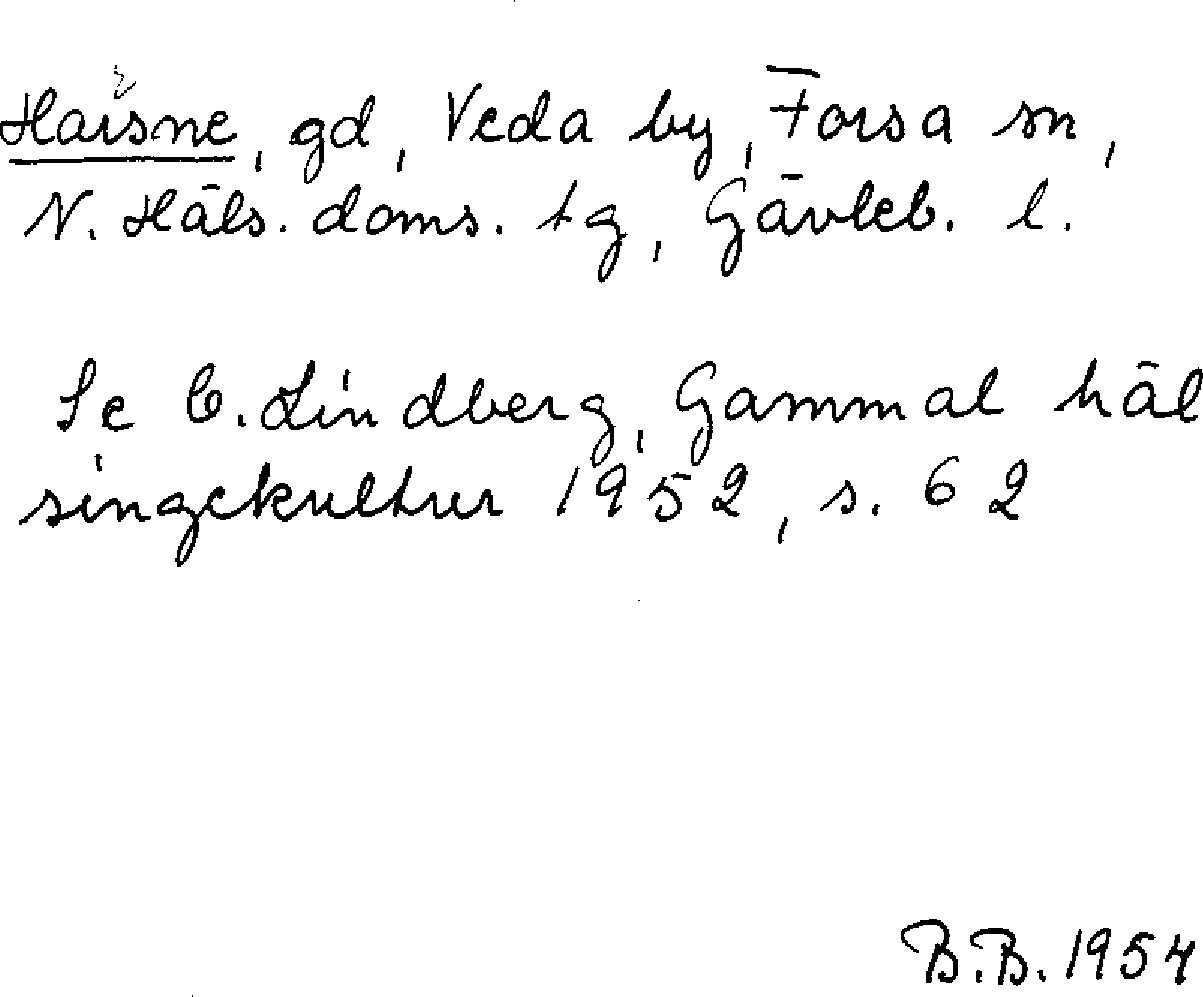 Haisne, gd, Veda by, Forsa sn,
N. Häls. doms. tg, Gävleb. l.
Se C. Lindberg, Gammal häl
singekultur 1952, s. 62
B.B. 1954